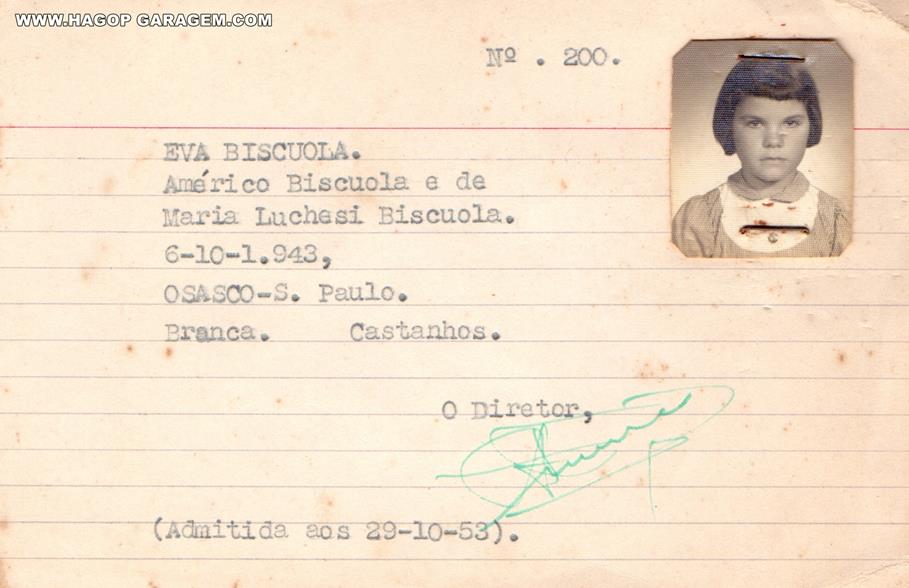 WWW.HAGOP GARAGEM.COM
Nº . 200.
EVA BISCUOLA.
Américo Biscuola e de
Maria Luchesi Biscuola.
6-10-1.943,
OSASCO-S. Paulo.
Branca. Castanhos.
O Diretor,
(Admitida aos 29-10-53).